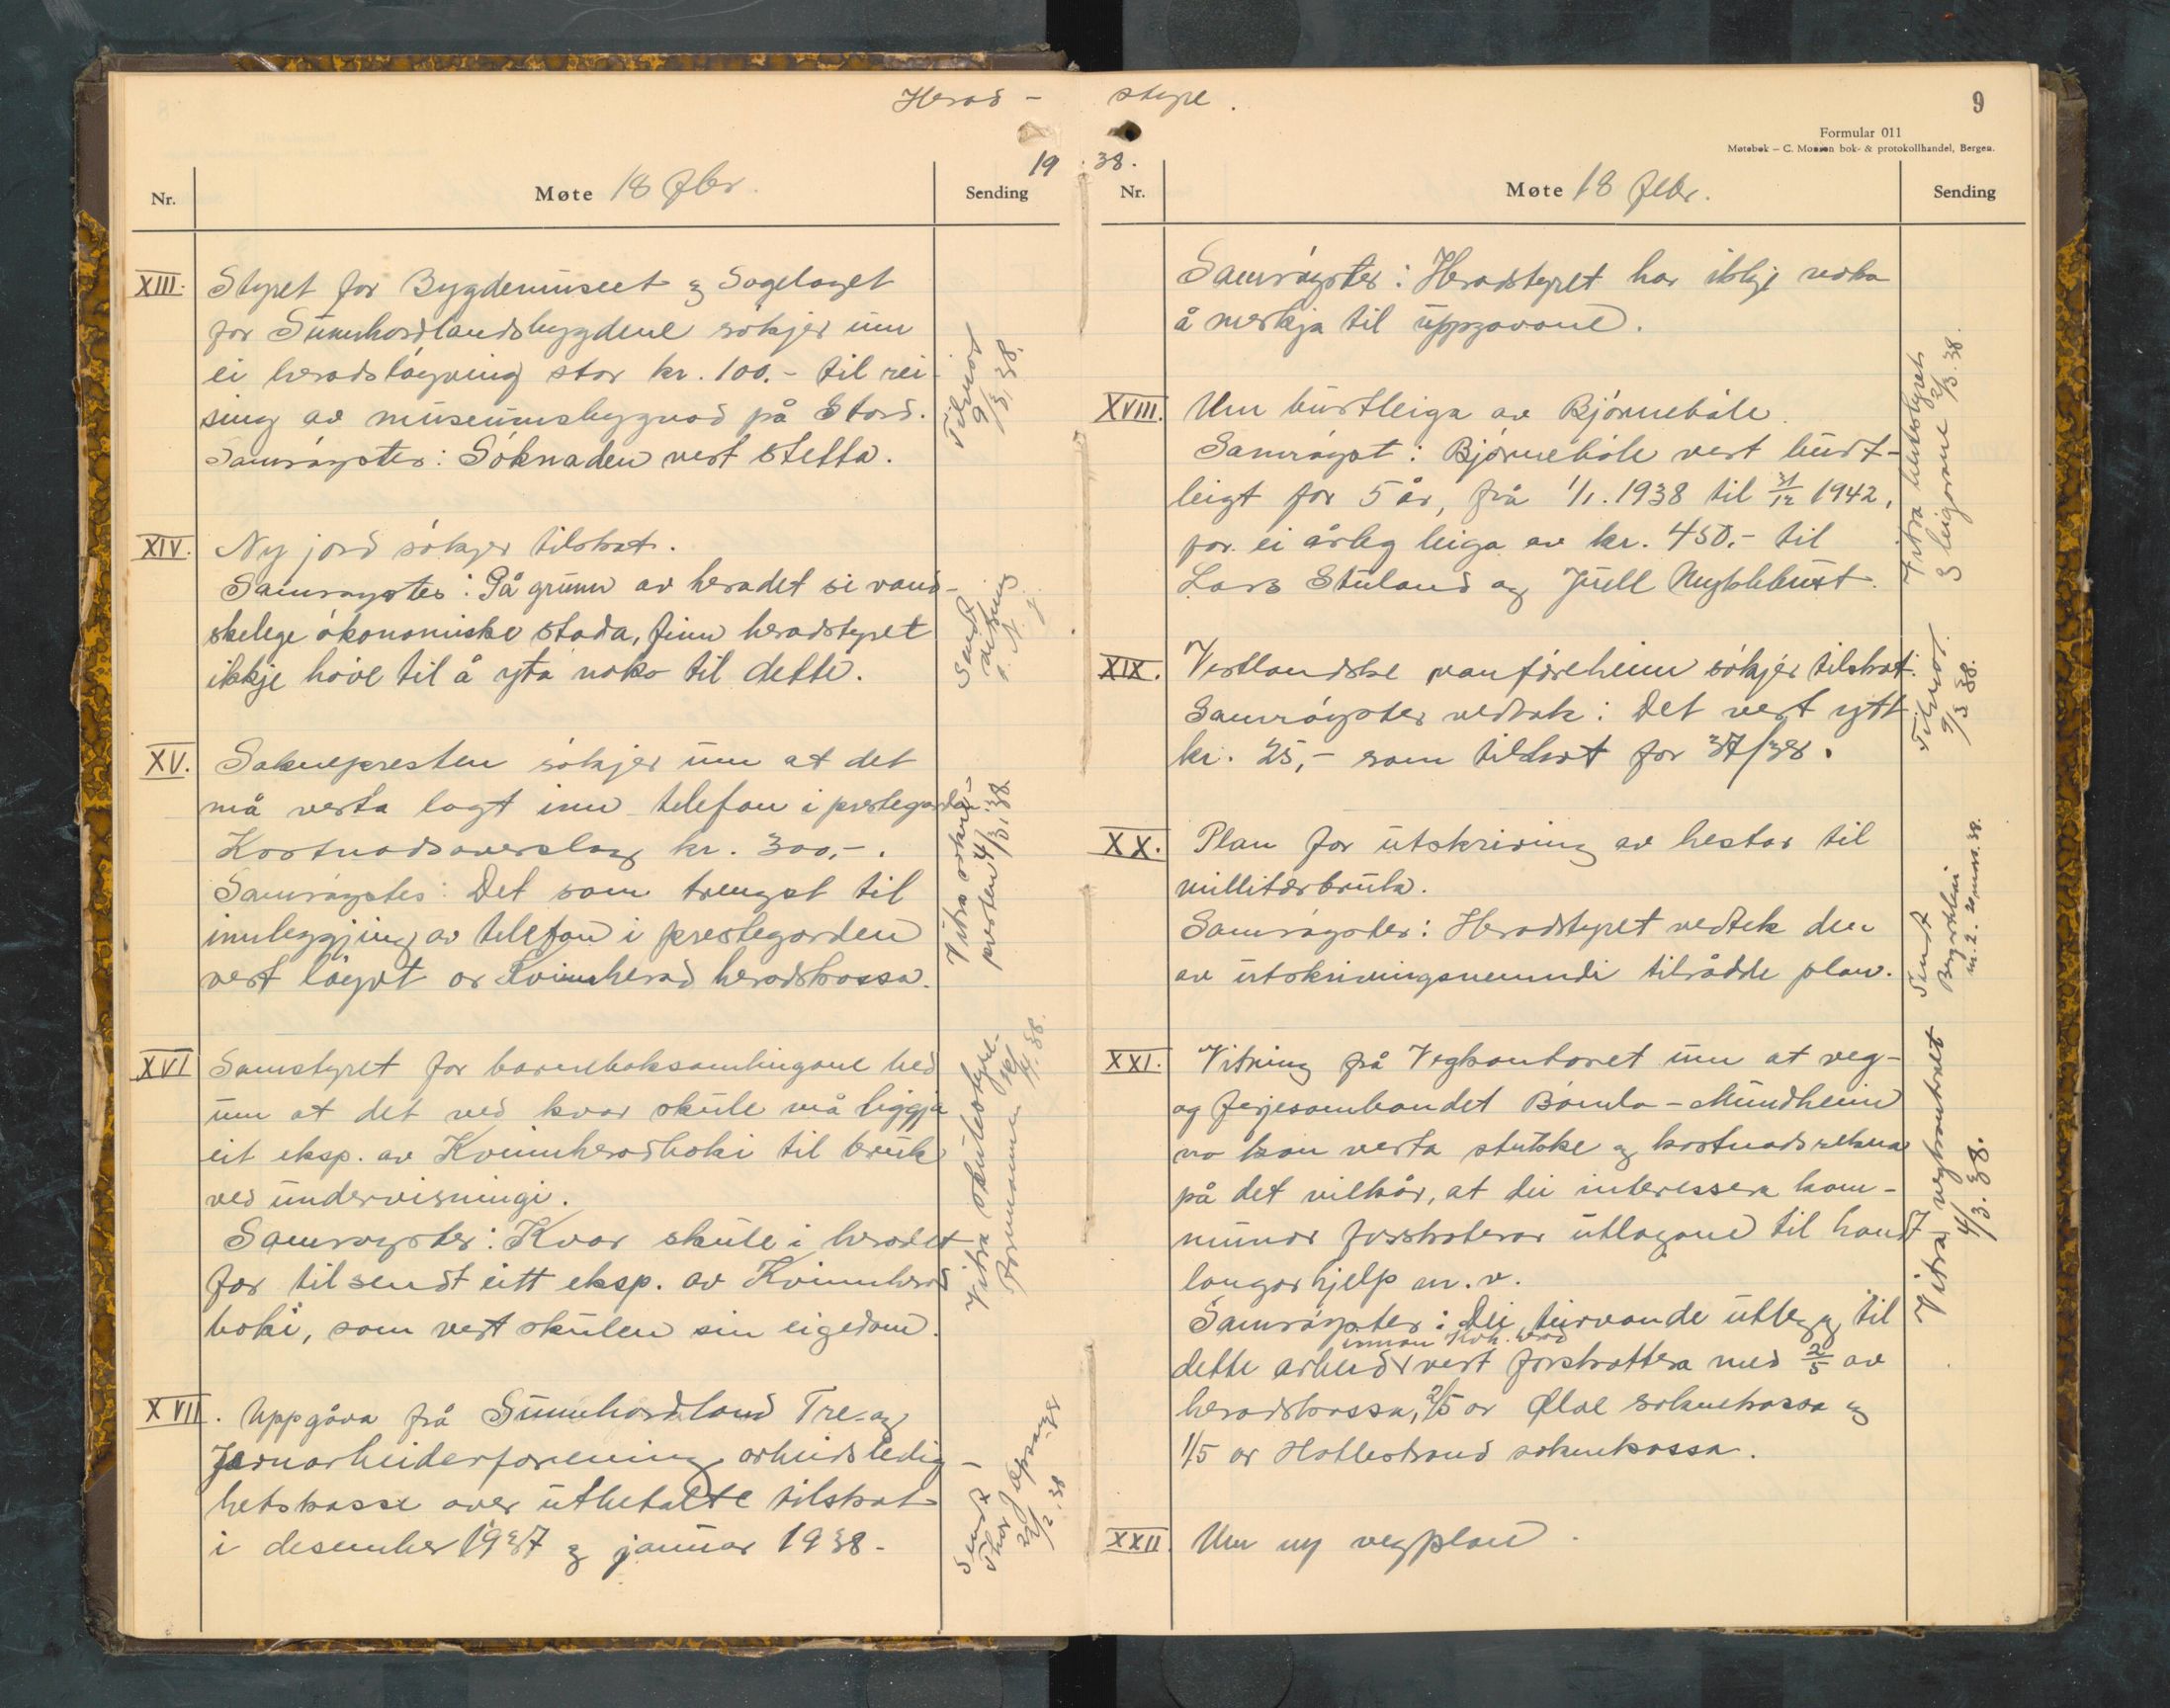 Herad-
19
Nr.
Møte 18 febr.
Sending
XIII. Styret for Bygdemuseet og Sogelaget
for Sunnhordlandsbygdene søkjer um
ei heradsløyving stor kr. 100.- til rei-
sing av museumsbygnad på Stord.
Samrøystes: Søknaden vert stetta.
Tilvist
9/3.38.
XIV. Ny jord søkjer tilskot.
Samrøystes: På grunn av heradet si vand-
skelege økonomiske stoda, finn heradstyret
ikkje høve til å yta noko til dette.
Sendt
vitring
XV. Soknepresten søkjer um at det
må verta lagt inn telefon i prestegarden
Kostnadsoverslag kr. 300,-.
Samrøystes: Det som trengst til
innleggjing av telefon i prestegarden
vert løyvt or Kvinnherad heradskassa.
Vitra sokne-
presten 4/3.38.
XVI Samstyret for barneboksamlingane bed
um at det ved kvar skule må liggja
eit eksp. av Kvinnheradboki til bruk
ved undervisningi.
Samrøystes: Kvar skule i heradet
fær tilsendt eitt eksp. av Kvinnherad
boki, som vert skulen sin eigedom.
Vitra skulestyre-
formannen
XVII. Uppgåva frå Sunnhordland Tre- og
Jernarbeiderforening arbeidsledig-
hetskasse over utbetalte tilskot
i desember 1937 og januar 1938.
Sendt
styre.
9
Formular 011
Møtebok – C. Monsen bok- & protokollhandel, Bergen.
38.
Nr.
Møte 18 febr.
Sending
Samrøystes: Heradstyret har ikkje noko
å merkja til uppgåvone.
XVIII. Um burtleiga av Bjørnebøle.
Samrøyst: Bjørnebøle vert burt-
leigt for 5 år, frå 1/1.1938 til 31/12 1942,
for ei årleg leiga av kr. 450.- til
Lars Støland og Juell Myklebust.
leigarane 2/3.38.
XIX. Vestlandske vanføreheim søkjer tilskot.
Samrøystes vedtak: Det vert ytt
kr. 25,- som tilskot for 37/38.
Tilvist.
9/3 38.
XX. Plan for utskriving av hestar til
millitærbruk.
Samrøystes: Heradstyret vedtek den
av utskrivingsnemndi tilrådde plan.
Sendt
XXI. Vitring frå Vegkontoret um at veg-
og ferjesambandet Bømlo-Mundheim
no kan verta stukke og kostnadsrekna
på det vilkår, at dei interessera kom-
munar forskoterar utlogone til hand-
langarhjelp m.v.
Samrøystes: Dei turvande utlegg til
innan Kvh. herad
dette arbeid vert forskottera med 2/5 av
heradskassa, 2/5 or Ølve soknekassa og
1/5 or Hatlestrand soknekassa.
Vitra vegkontoret
4/3.38.
XXII Um ny vegplan.